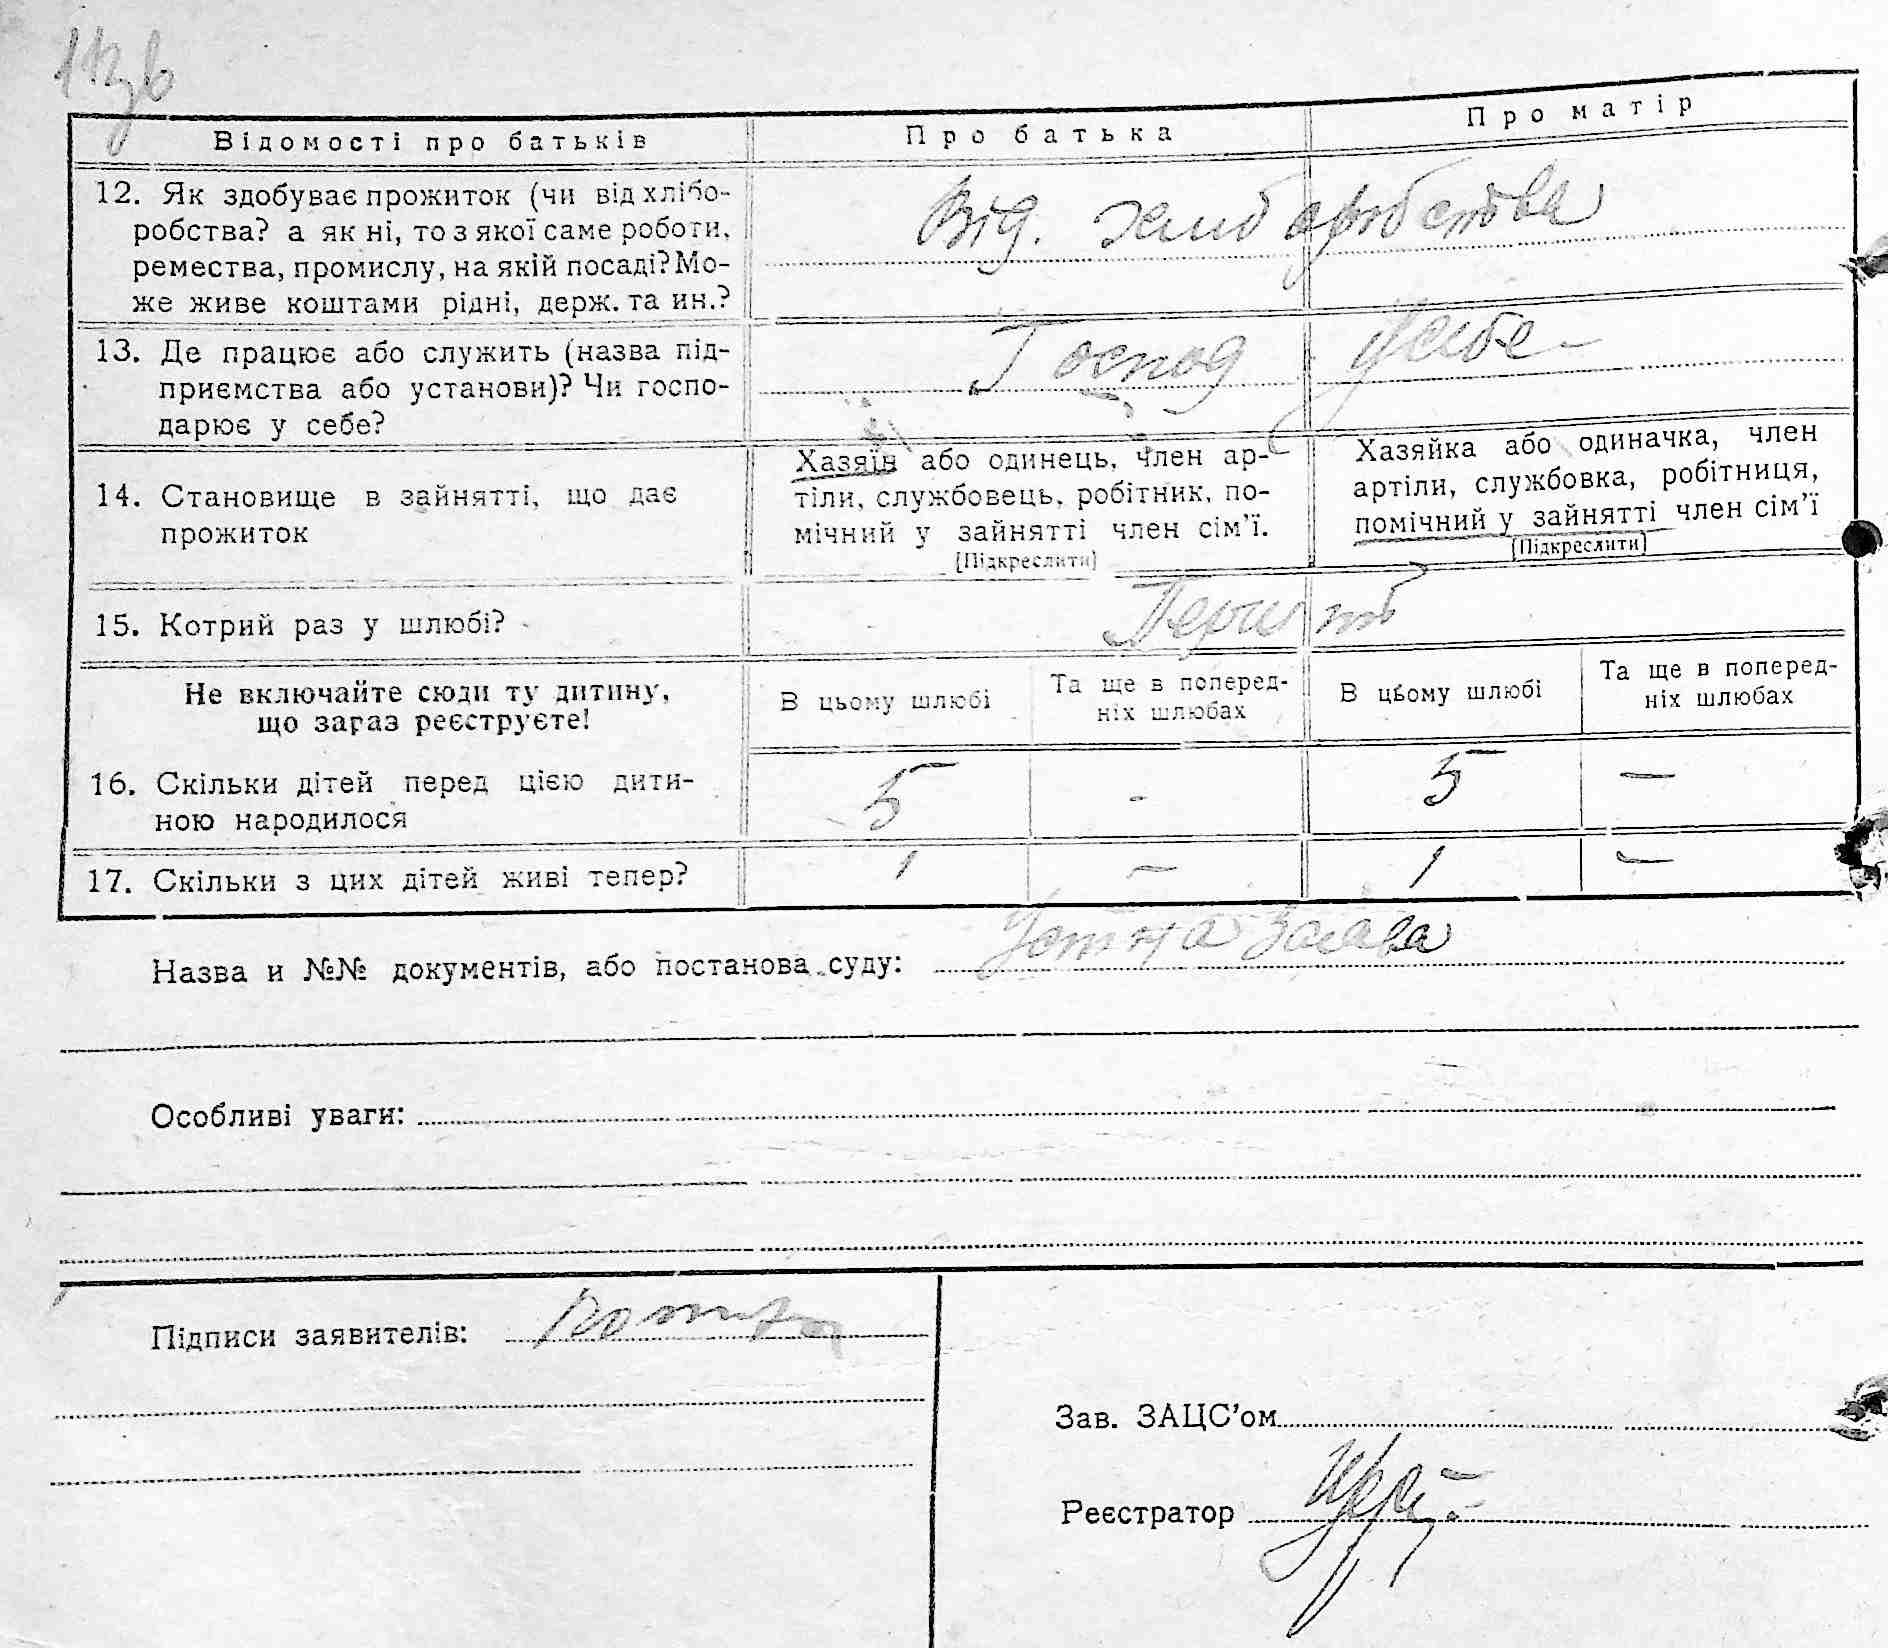 113 зв
Відомості про батьків
Про батька
Про матір
12. Як здобуває прожиток (чи від хлібо-
робства? а як ні, то з якої саме роботи,
ремества, промислу, на якій посаді? Мо-
же живе коштами рідні, держ. та ин.?
Від.
13. Де працює або служить (назва під-
приємства або установи)? Чи госпо-
дарює у себе?
Господ. у себе
14. Становище в зайнятті, що дає
прожиток
Хазяїн або одинець, член ар-
тіли, службовець, робітник, по-
мічний у зайнятті член сім'ї.
(Підкреслити)
Хазяйка або одиначка, член
артіли, службовка, робітниця,
помічний у зайнятті член сім'ї
(Підкреслити)
15. Котрий раз у шлюбі?
Не включайте сюди ту дитину,
що зараз реєструєте!
В цьому шлюбі
Та ще в поперед-
ніх шлюбах
В цьому шлюбі
Та ще в поперед-
ніх шлюбах
16. Скільки дітей перед цією дити-
ною народилося
5 - 5 —
17. Скільки з цих дітей живі тепер?
1 — 1 —
Назва и №№ документів, або постанова суду: Устна заява
Особливі уваги:
Підписи заявителів:
Зав. ЗАЦС'ом
Реєстратор